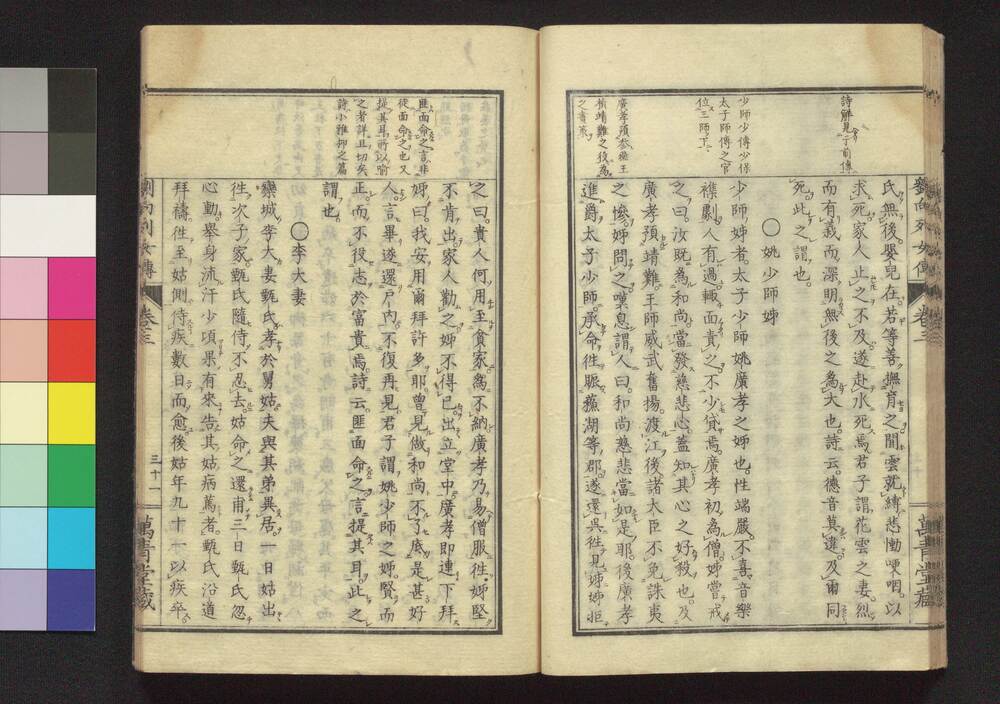 詩解見于前傳
少師少傳少保
太子師傳之官
位三師下
廣孝預參燕王
横靖難之役為
之首衆
氏無後嬰兒在若等善撫育之間雲就縛悲慟哽咽以
求死家人止之不及遂赴水死焉君子謂花雲之妻烈
而有義而深明無後之為大也詩云德音莫違及爾同
死此之謂也
○姚少師姊
少師姊者太子少師姚廣孝之姊也性端嚴不喜音樂
襍劇人有過輙面責之不少貸焉廣孝初為僧姊嘗戒
之曰汝既為和尚當發慈悲心蓋知其心之好殺也及
廣孝預靖難王師威武奮揚渡江後諸大臣不免誅夷
之慘姊問之嘆息謂人曰和尚慈悲當如是耶後廣孝
進爵太子少師承命往賑蘇湖等郡遂還呉往見姊姊拒
劉向列女傳 卷三
萬青堂藏
匪面命之言非
徒面命之也又
提其耳所以喻
之者詳且切矣
詩小雅抑之篇
之曰貴人何用至貧家為不納廣孝乃易僧服往姊堅
不肯出家人勸之姊不得已出立堂中廣孝即連下拜
姊曰我安用爾拜許多耶曾見做和尚不了底是甚好
人言畢遂還戸内不復再見君子謂姚少師之姊賢而
正而不役志於富貴焉詩云匪面命之言提其耳此之
謂也
○李大妻
欒城李大妻甄氏孝於舅姑夫與其弟異居一日姑出
徃次子家甄氏隨侍不忍去姑命之還甫三日甄氏忽
心動舉身流汗少頃果有來告其姑病篤者甄氏沿道
拜禱徃至姑側侍疾數日而愈後姑年九十一以疾卒
劉向列女傳 卷三
三十一
萬青堂藏